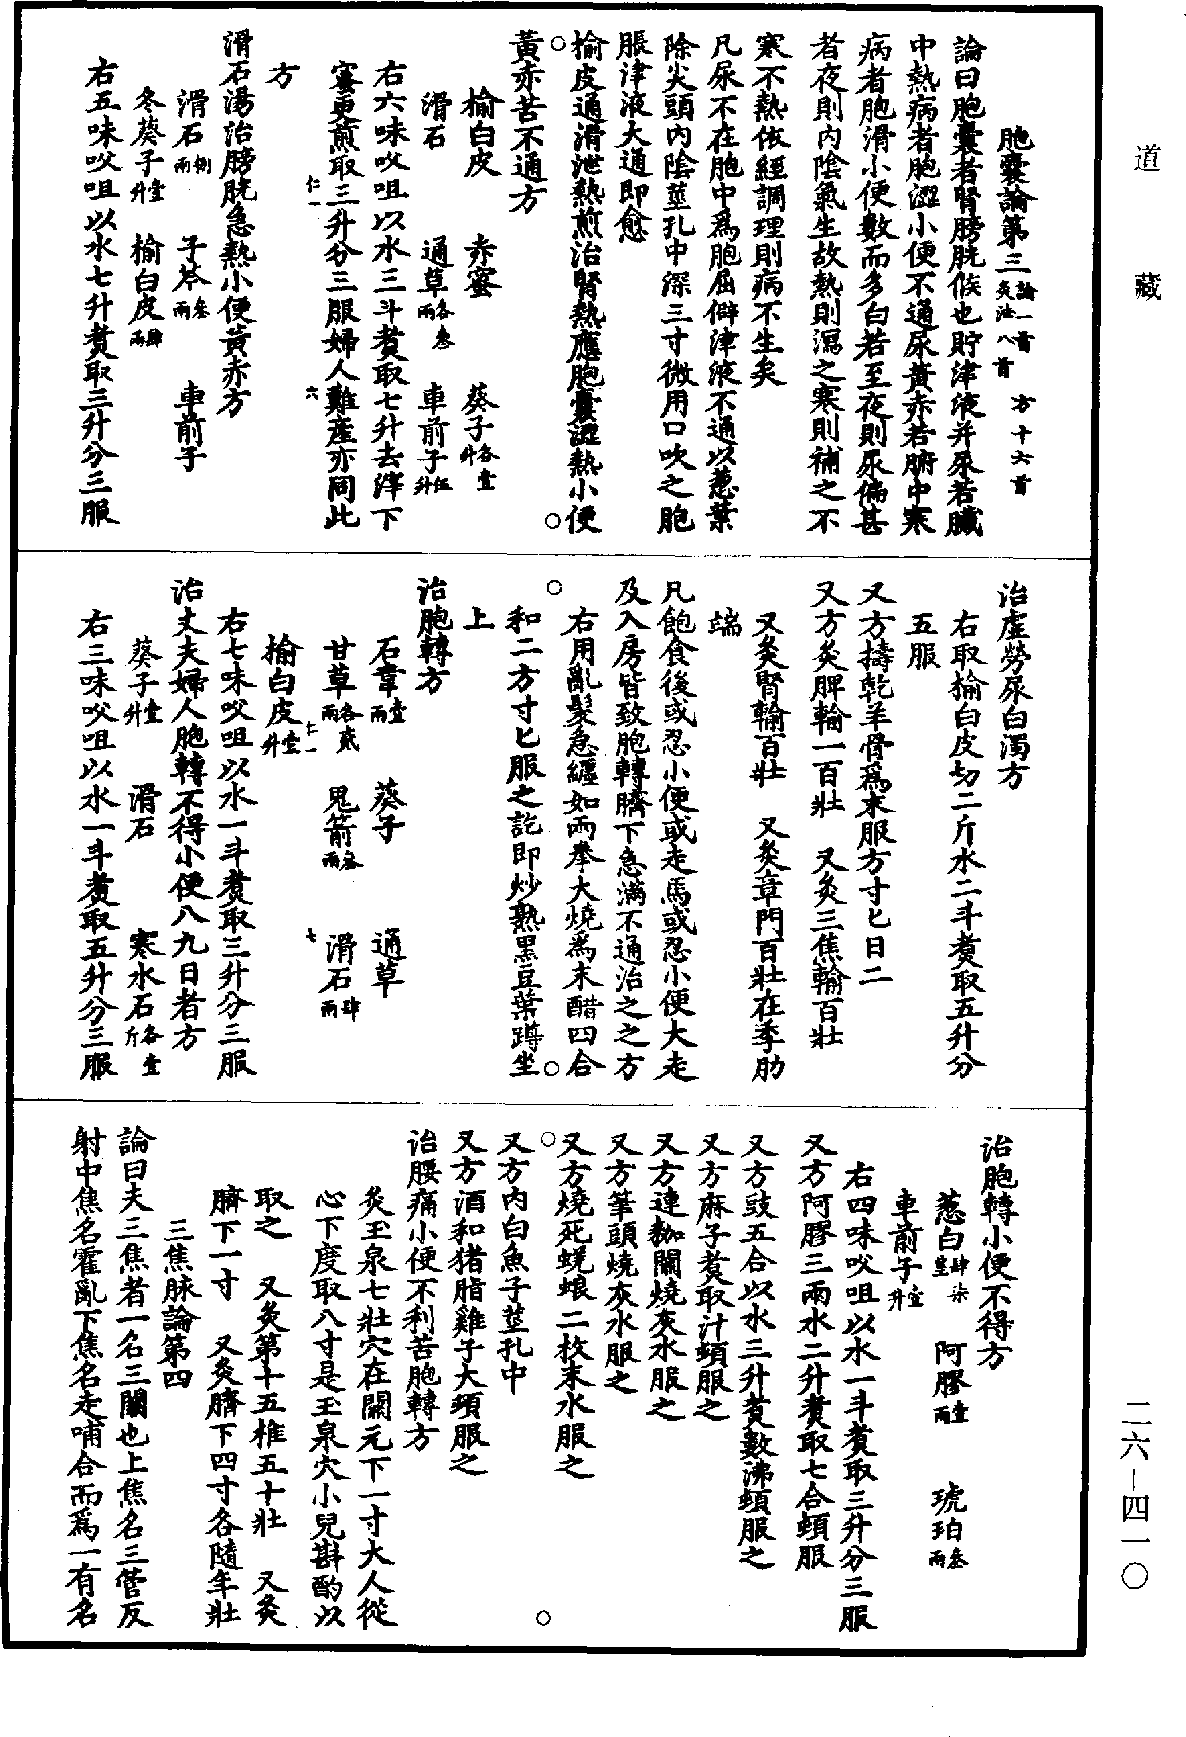 道藏
胞囊論第三論一首 方十六首 灸法八首
論曰胞囊者腎膀胱候也貯津液并尿若臟
中熱病者胞澀小便不通尿黃赤若腑中寒
病者胞滑小便數而多白若至夜則尿偏甚
者夜則內陰氣生故熱則瀉之寒則補之不
寒不熱依經調理則病不生矣
凡尿不在胞中爲胞屈僻津液不通以蔥葉
除尖頭內陰莖孔中深三寸微用口吹之胞
脹津液大通即愈
榆皮通滑泄熱煎治腎熱應胞囊澀熱小便
黃赤苦不通方
榆白皮 赤蜜 葵子各壹升
滑石 通草各叁兩 車前子伍升
右六味㕮咀以水三斗煮取七升去滓下
蜜更煎取三升分三服婦人難產亦同此
方
仁一 六
滑石湯治膀胱急熱小便黃赤方
滑石捌兩 子芩叁兩 車前子
冬葵子壹升 榆白皮肆兩
右五味㕮咀以水七升煮取三升分三服
治虛勞尿白濁方
右取榆白皮切二斤水二斗煮取五升分
五服
又方擣乾羊骨爲末服方寸匕日二
又方灸脾輸一百壯 又灸三焦輸百壯
又灸腎輸百壯 又灸章門百壯在季肋
端
凡飽食後或忍小便或走馬或忍小便大走
及入房皆致胞轉臍下急滿不通治之之方
右用亂髮急纏如兩拳大燒爲末醋四合
和二方寸匕服之訖即炒熟黑豆葉蹲坐
上
治胞轉方
石韋壹兩 葵子 通草
甘草各貳兩 鬼箭叁兩 滑石肆兩
榆白皮壹升
仁一 七
右七味㕮咀以水一斗煮取三升分三服
治丈夫婦人胞轉不得小便八九日者方
葵子壹升 滑石 寒水石各壹斤
右三味㕮咀以水一斗煮取五升分三服
治胞轉小便不得方
蔥白肆柒莖 阿膠壹兩 琥珀叁兩
車前子壹升
右四味㕮咀以水一斗煮取三升分三服
又方阿膠三兩水二升煮取七合頓服
又方豉五合以水三升煮數沸頓服之
又方麻子煮取汁頓服之
又方連枷關燒灰水服之
又方筆頭燒灰水服之
又方燒死蜣蜋二枚末水服之
又方內白魚子莖孔中
又方酒和猪脂雞子大頓服之
治腰痛小便不利苦胞轉方
灸玉泉七壯穴在關元下一寸大人從
心下度取八寸是玉泉穴小兒斟酌以
取之 又灸第十五椎五十壯 又灸
臍下一寸 又灸臍下四寸各隨年壯
三焦脉論第四
論曰夫三焦者一名三關也上焦名三管反
射中焦名霍亂下焦名走哺合而爲一有名
二六－四一〇